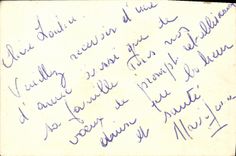 Chère Loulou
Veuillez recevoir d'une
d'amie aussi que de
ta famille Tous nos
vœux de prompt rétablissement
ainsi que bonheur
et santé